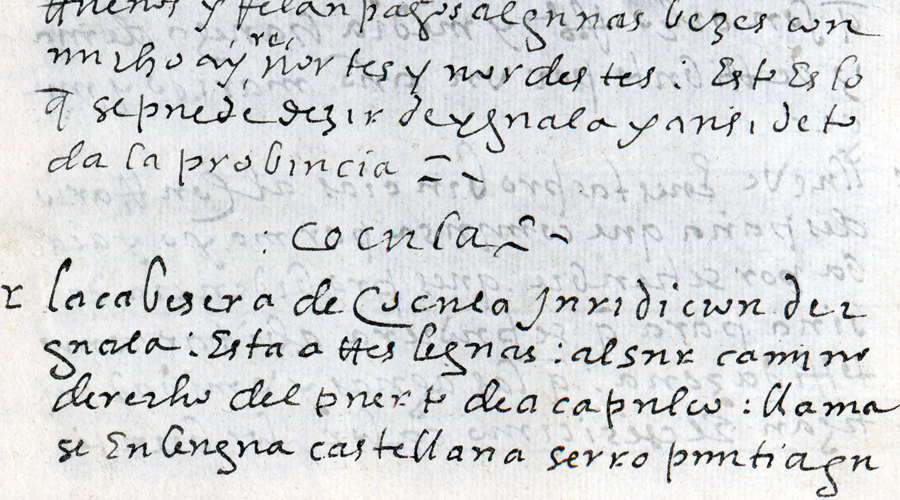 truenos y relanpagos algunas bezes con
mucho ayre nortes y nordestes : Esto Es lo
q̄ se puede dezir de yguala y ansi de to
da la probincia
Cocula
la cabesera de Cocula Juridicion de i
guala : Esta a tres leguas : al sur camino
derecho del puerto de acapulco : llama
se En lengua castellana serro puntiagu